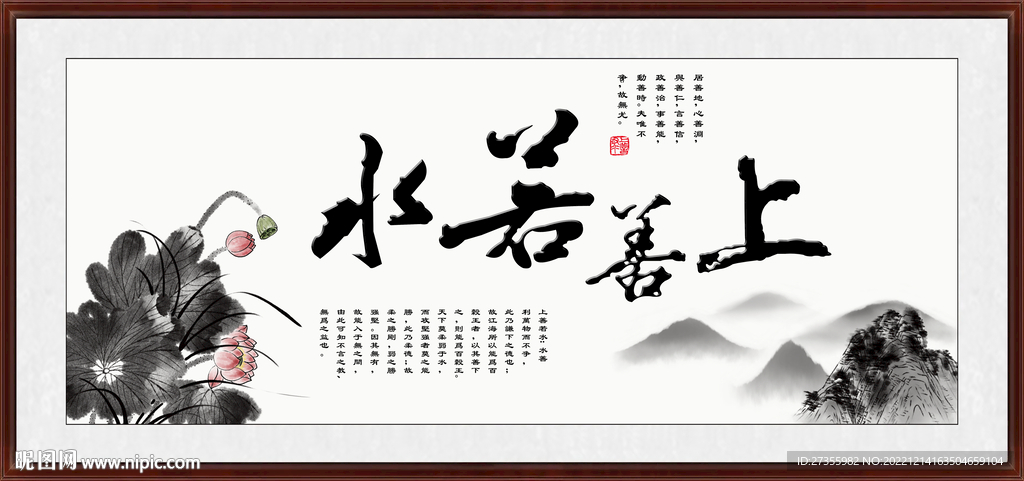 上善若水
居善地,心善淵,
與善仁,言善信,
政善治,事善能,
動善時。夫唯不
爭,故無尤。
上善若水"水善
利萬物而不爭,
此乃謙下之德也;
故江海所以能爲百
穀王者,以其善下
之,則能爲百穀王。
天下莫柔弱于水,
而攻堅强者莫之能
勝,此乃柔德;故
柔之勝剛,弱之勝
强堅。因其無有,
故能入于無之間,
由此可知不言之教、
無爲之益也。
昵图网 www.nipic.com
ID:27355982 NO:20221214163504659104